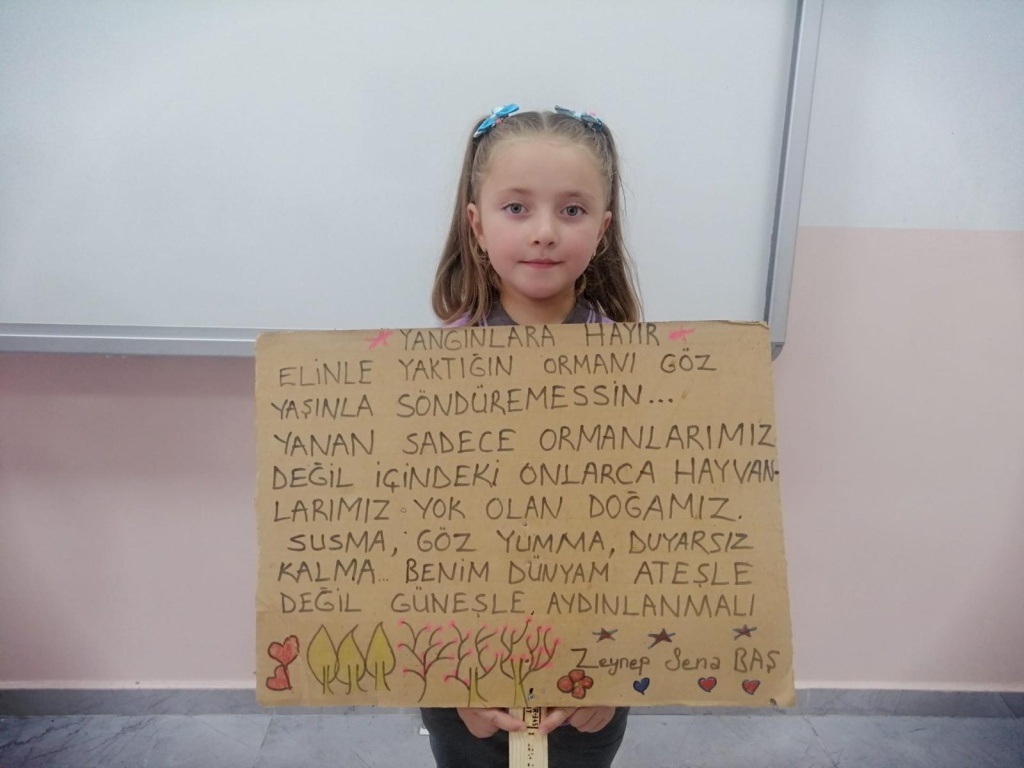 YANGINLARA HAYIR
ELİNLE YAKTIĞIN ORMANI GÖZ
YAŞINLA SÖNDÜREMESSİN...
YANAN SADECE ORMANLARIMIZ
DEĞİL İÇİNDEKİ ONLARCA HAYVAN-
LARIMIZ YOK OLAN DOĞAMIZ.
SUSMA, GÖZ YUMMA, DUYARSIZ
KALMA... BENİM DÜNYAM ATEŞLE
DEĞİL GÜNEŞLE AYDINLANMALI
Zeynep Sena BAŞ